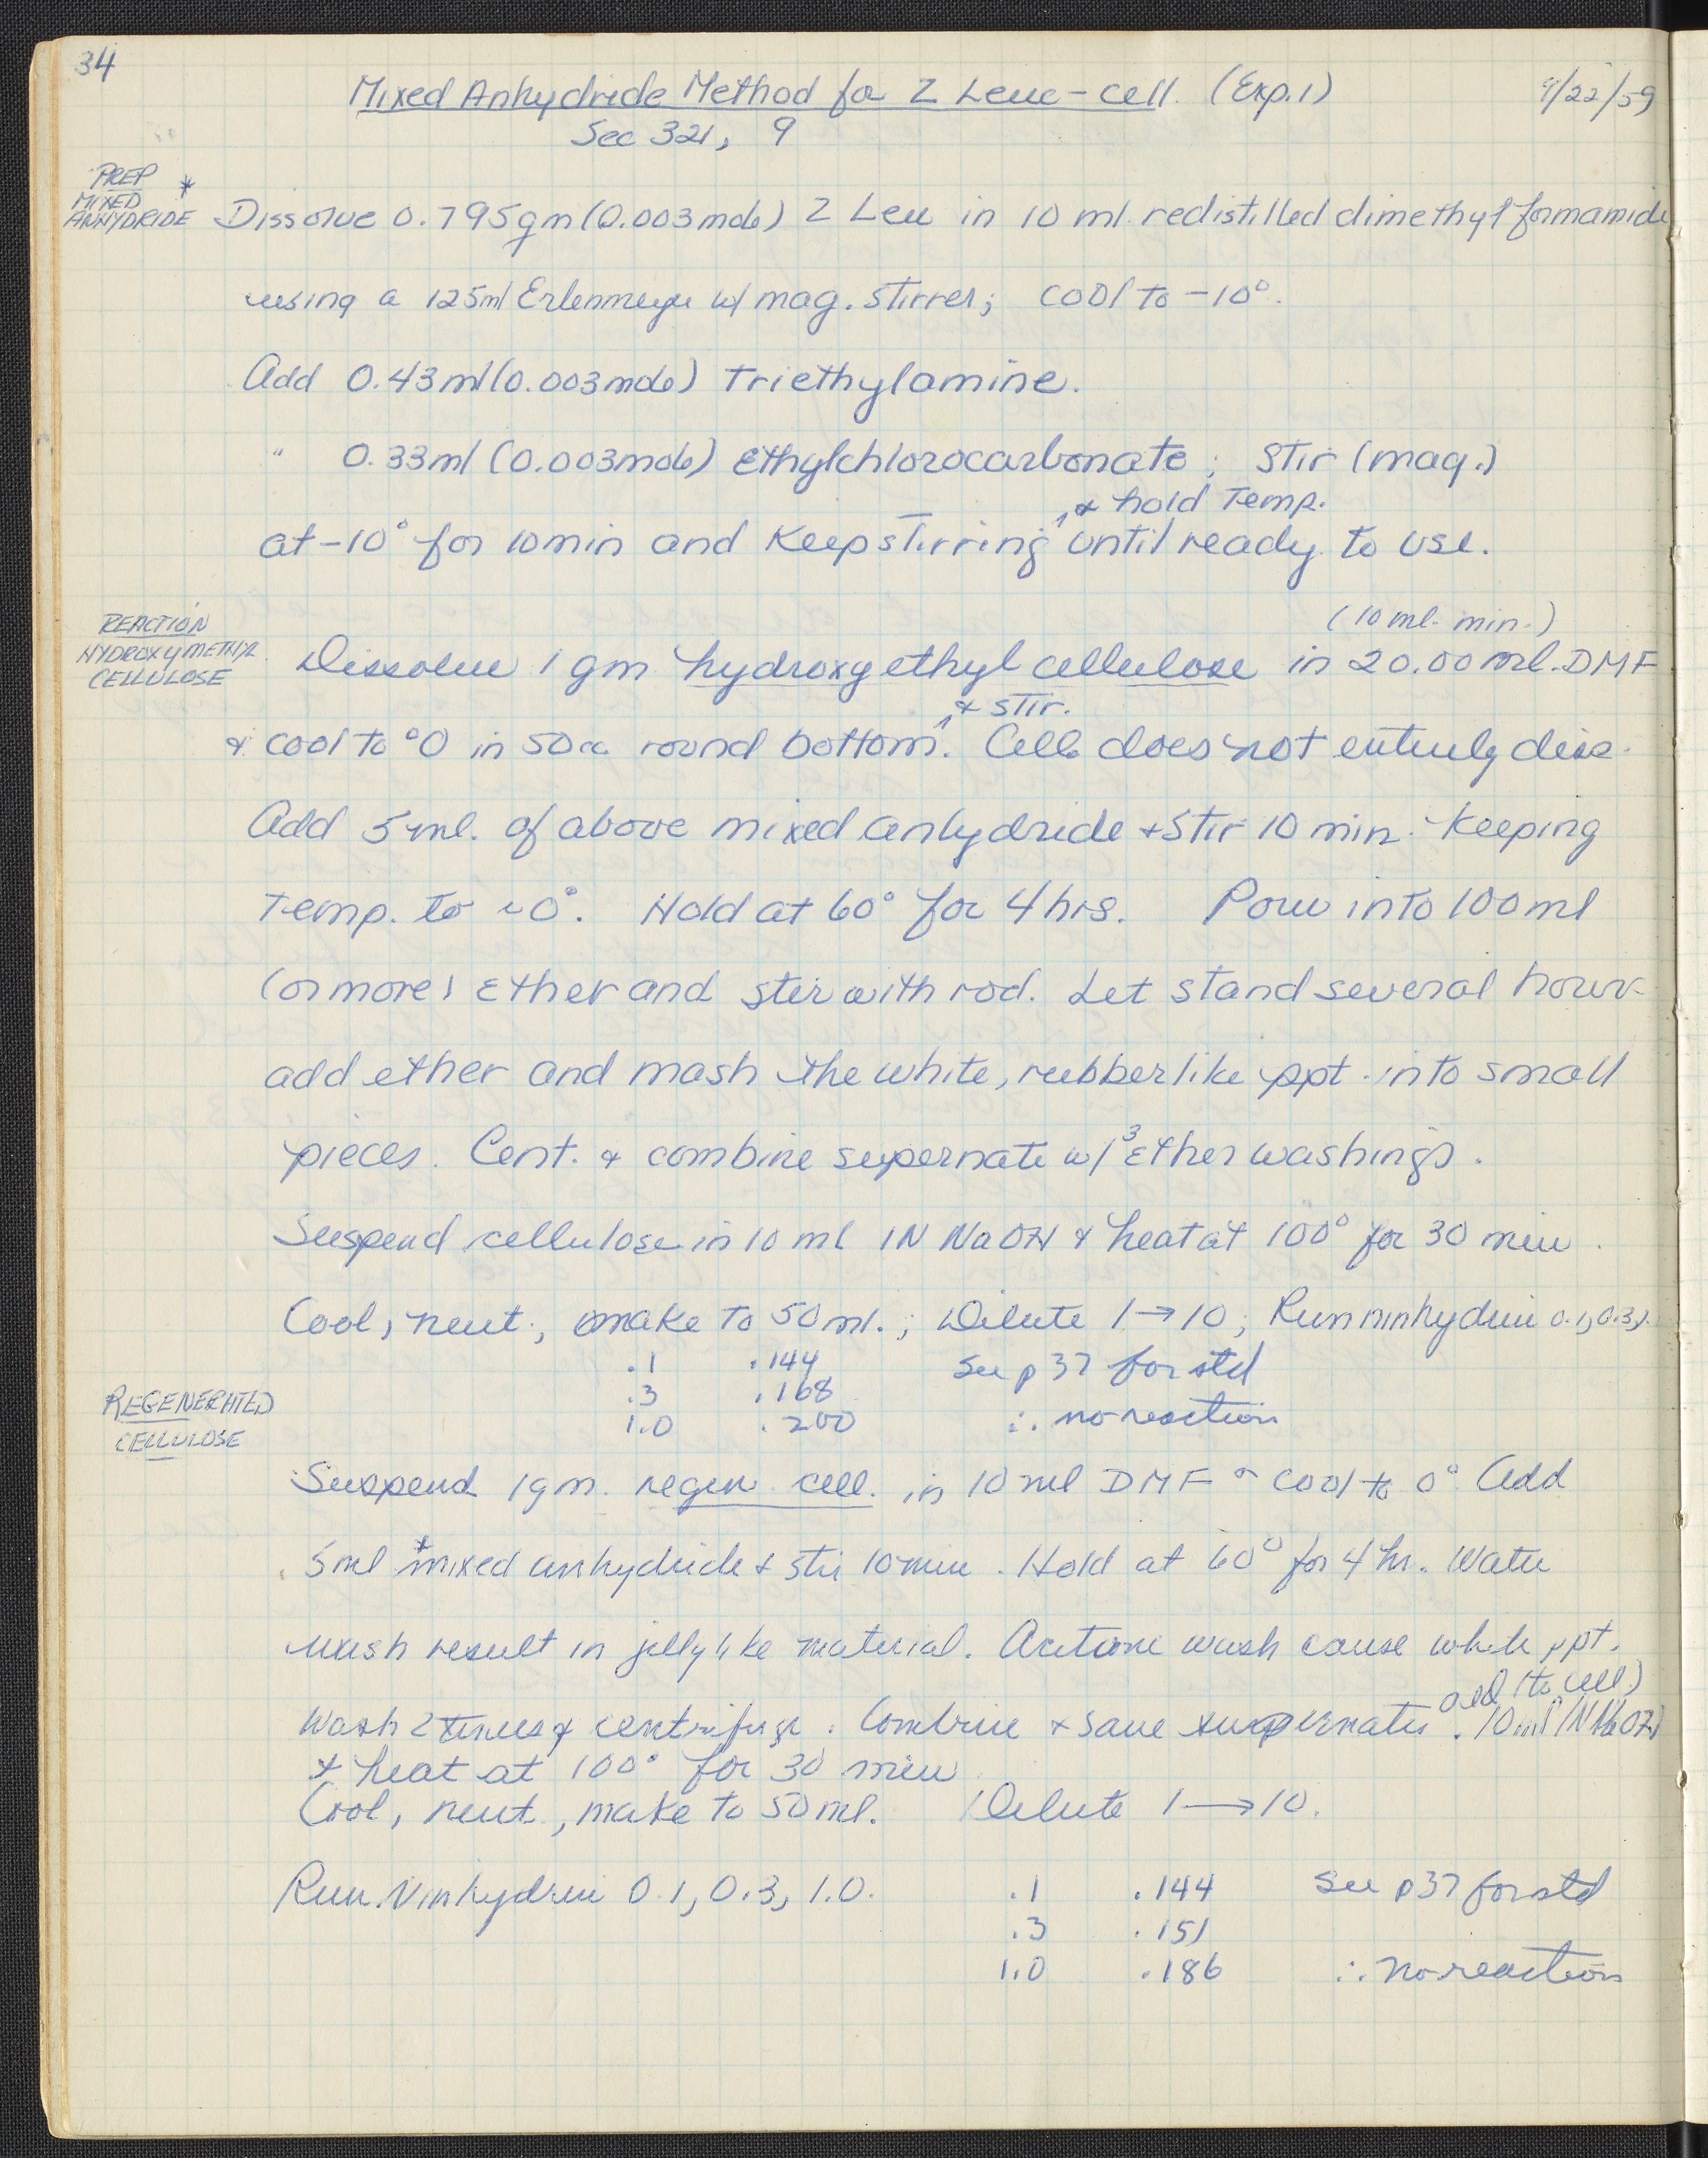 34
Mixed Anhydride Method for Z Leuc-cell. (Exp. 1) 4/22/59
Sec 321, 9
PREP
MIXED *
ANHYDRIDE
Dissolve 0.795gm (0.003mole) Z Leu in 10 ml redistilled dimethyl formamide
using a 125ml Erlenmeyer w/ mag. stirrer; cool to -10°.
Add 0.43ml (0.003mole) Triethylamine.
" 0.33ml (0.003mole) Ethylchlorocarbonate; Stir (mag.)
& hold Temp.
at -10° for 10min and Keep stirring until ready to use.
REACTION
HYDROXYMETHYL
CELLULOSE
(10 ml. min.)
Dissolve 1 gm hydroxyethyl cellulose in 20.00 ml. DMF
& stir.
& cool to °0 in 50cc round bottom. Cell does not entirely diss.
Add 5 ml. of above mixed anhydride + Stir 10 min. Keeping
Temp. to ~0°. Hold at 60° for 4 hrs. Pour into 100ml
(or more) Ether and stir with rod. Let stand several hours
add ether and mash the white, rubberlike ppt. into small
pieces. Cent. & combine supernate w/ 3 Ether washings.
Suspend cellulose in 10 ml 1N NaOH & heat at 100° for 30 min.
Cool, neut., make to 50 ml.; Dilute 1→10; Run ninhydrin 0.1, 0.3,
.1 .144 See p 37 for std
.3 .168
1.0 .200 ∴ no reaction
REGENERATED
CELLULOSE
Suspend 1gm. regen. cell. in 10 ml DMF & cool to 0° Add
5ml *mixed anhydride + stir 10 min. Hold at 60° for 4 hr. Water
wash result in jellylike material. Acetone wash cause white ppt.
add (to cell)
Wash 2 times & centrifuge. Combine & save supernates. 10 ml 1N NaOH
& heat at 100° for 30 min
Cool, neut., make to 50 ml. Dilute 1→10.
Run Ninhydrin 0.1, 0.3, 1.0. .1 .144 See p37 for std
.3 .151
1.0 .186 ∴ no reaction